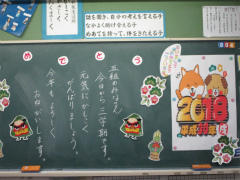 話を聞き、自分の考えを言える子
なかよく助け合える子
めあてを持って、体をきたえる子
めでとう
五組のみなさん
今日から三学期です。
元気になかよく
がんばりましょう。
今年もよろしく
おねがいします。
2018
平成30年